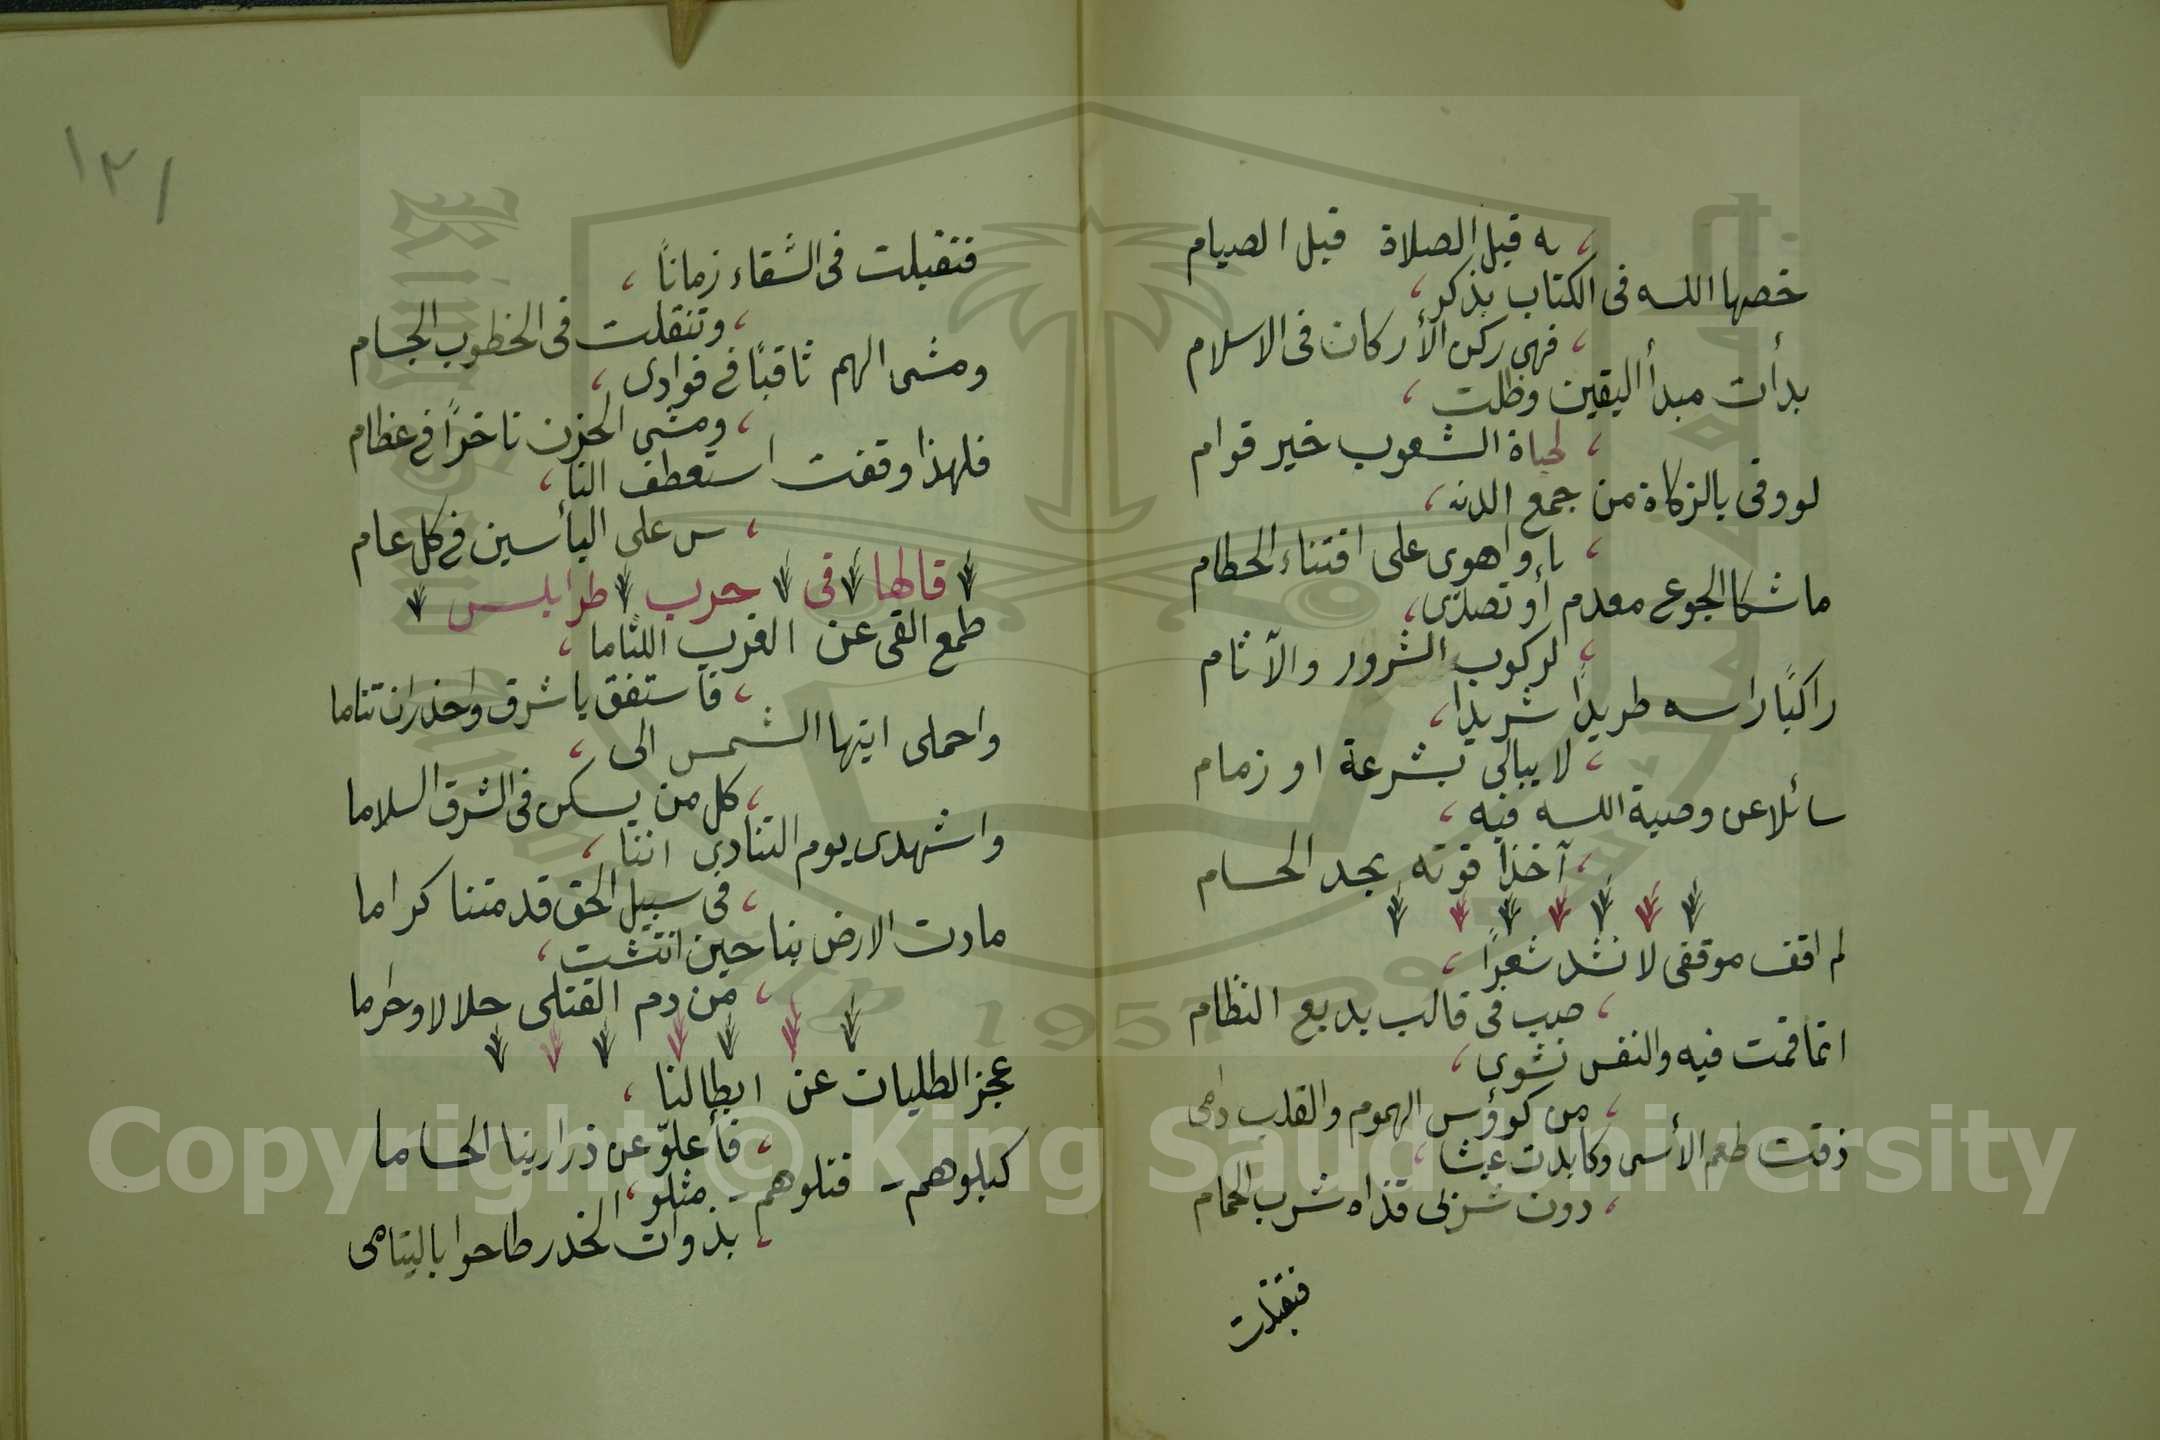 ـه قبل الصلاة قبل الصيام
خصها الله فى الكتاب بذكر
فهى ركن الأركان فى الاسلام
بدأت مبدأ اليقين وظلت
لحياة الشعوب خير قوام
لو وفى بالزكاة من جمع الدنـ
يا واهوى على اقتناء الحطام
ما شكا الجوع معدم أو تصدى
لركوب الشرور والآثام
راكبًا راسه طريدًا شريدا
لا يبالى بشرعة او زمام
سائلا عن وصية الله فيه
آخذا قوته بحد الحسام
لم اقف موقفى لانشد شعرًا
صب فى قالب بديع النظام
انما قمت فيه والنفس نشوى
من كوؤس الهموم والقلب دامى
ذقت طعم الأسى وكابدت عيشا
دون شربى قذاه شرب الحمام
فتقبلت
١٣١
فتقبلت فى الشقاء زمانًا
وتنقلت فى الخطوب الجسام
ومشى الهم ثاقبًا فى فوادى
ومشى الحزن ناخرًا فى عظام
فلهذا وقفت استعطف النا
س على البأسين فى كل عام
قالها فى حرب طرابلس
طمع القى عن الغرب اللثاما
فاستفق يا شرق واحذر ان تناما
واحملى ايتها الشمس الى
كل من يسكن فى الشرق السلاما
واشهدى يوم التنادى اننا
فى سبيل الحق قد متنا كراما
مادت الارض بنا حين انتشت
من دم القتلى حلالا وحراما
عجز الطليان عن ابطالنا
فأعلوّ عن ذرارينا الحساما
كبلوهم - قتلوهم - مثلو
بذوات الخدر طاحوا باليتامى
King Saud University
1957
Copyright © King Saud University